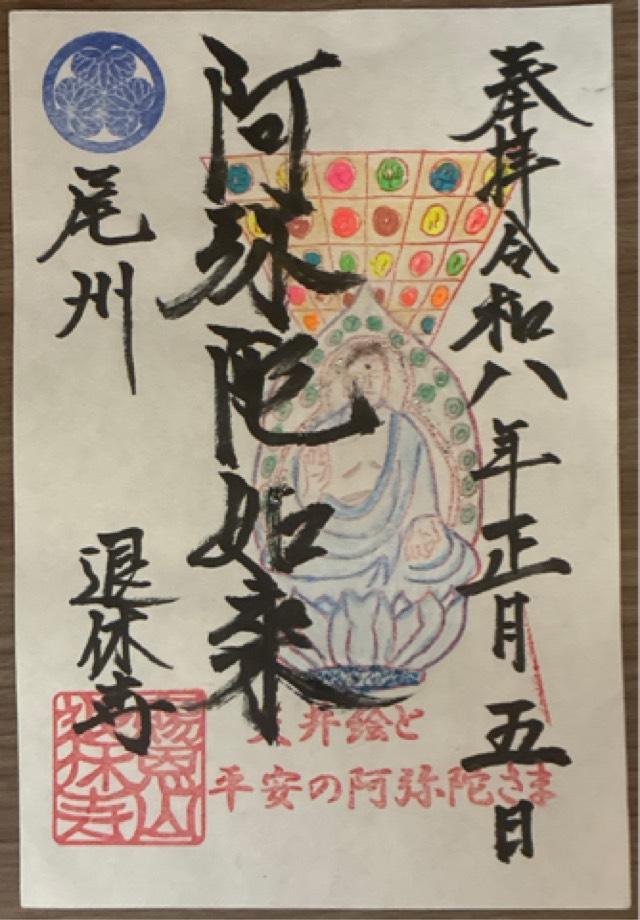 奉拝令和八年正月五日
阿弥陀如来
尾州
退休寺
天井絵と
平安の阿弥陀さま